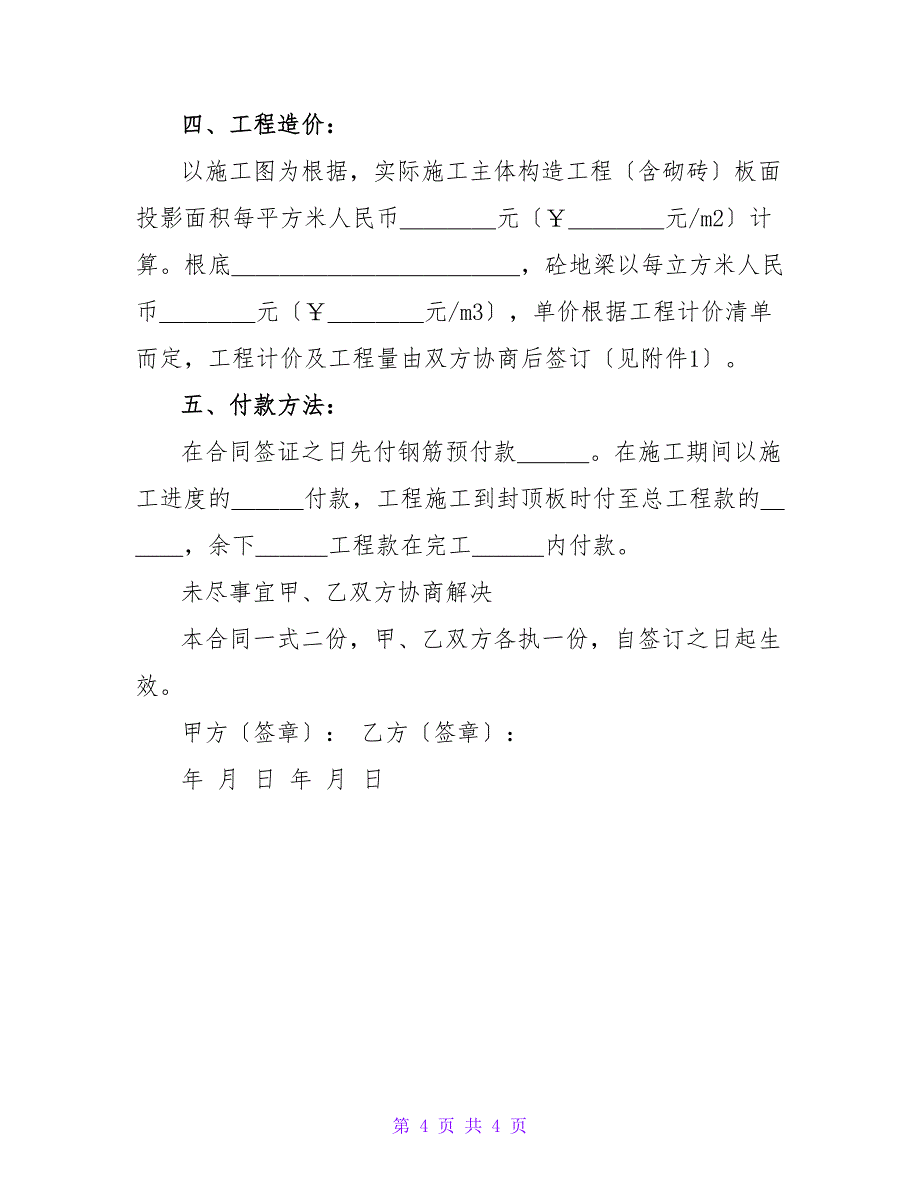 四、工程造价：
以施工图为根据，实际施工主体构造工程〔含砌砖〕板面
投影面积每平方米人民币________元〔￥________元/m2〕计
算。根底________________________，砼地梁以每立方米人民
币________元〔￥________元/m3〕，单价根据工程计价清单
而定，工程计价及工程量由双方协商后签订〔见附件1〕。
五、付款方法：
在合同签证之日先付钢筋预付款______。在施工期间以施
工进度的______付款，工程施工到封顶板时付至总工程款的__
____，余下______工程款在完工______内付款。
未尽事宜甲、乙双方协商解决
本合同一式二份，甲、乙双方各执一份，自签订之日起生
效。
甲方〔签章〕： 乙方〔签章〕：
年 月 日 年 月 日
第 4 页 共 4 页